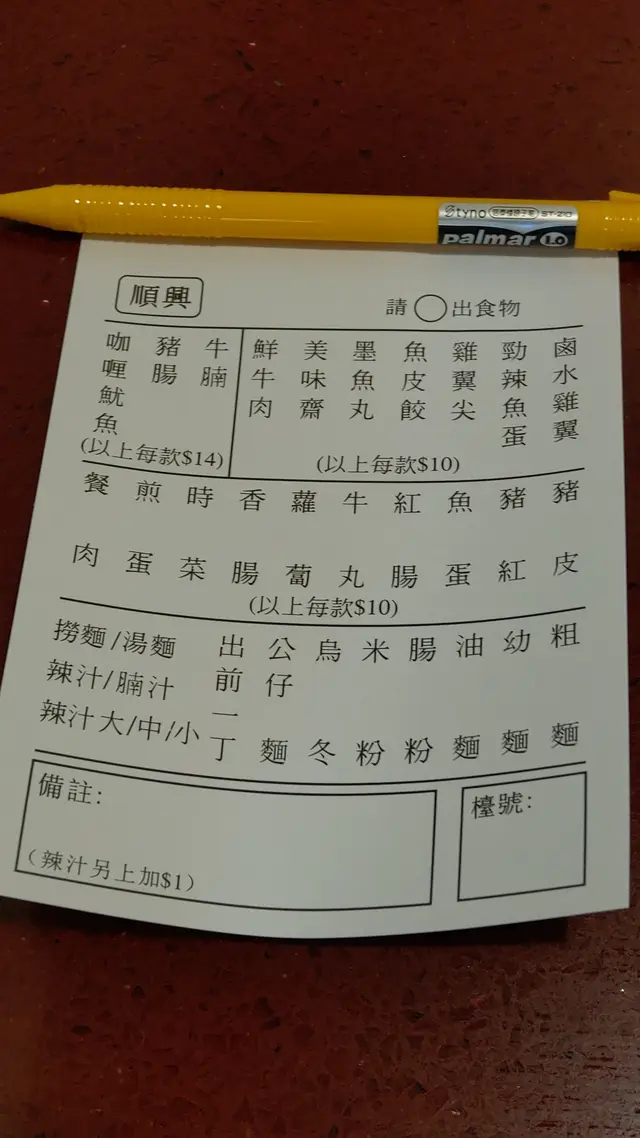 Styno
palmar 1.0
順興
請○出食物
鹵水雞翼
勁辣魚蛋
雞翼尖
魚皮餃
墨魚丸
美味齋
鮮牛肉
(以上每款$10)
牛腩
豬腸
咖喱魷魚
(以上每款$14)
豬皮
豬紅
魚蛋
紅腸
牛丸
蘿蔔
香腸
時菜
煎蛋
餐肉
(以上每款$10)
粗麵
幼麵
油麵
腸粉
米粉
烏冬
公仔麵
出前一丁
撈麵/湯麵
辣汁/腩汁
辣汁大/中/小
備註:
(辣汁另上加$1)
檯號: